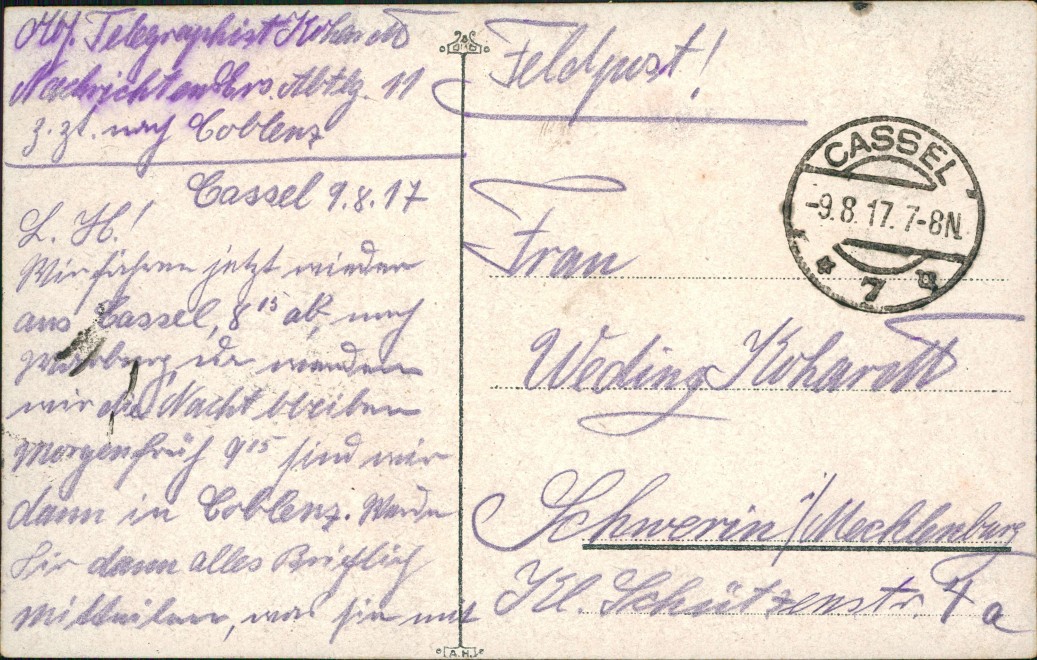 Abs. Telegraphist Kohardt
Nachrichten Ers. Abtlg. 11
z. zt. nach Coblenz
Cassel 9.8.17
L. H.!
Wir fahren jetzt wieder
aus Cassel, 8 15 ab, nach
Marburg, da werden
wir die Nacht bleiben
Morgenfrüh 9 15 sind wir
dann in Coblenz. Werde
Dir dann alles Brieflich
mitteilen, was sie mit
Feldpost!
CASSEL
-9.8.17. 7-8N.
* 7
Frau
Weding Kohardt
Schwerin i/Mecklenburg
Kl. Schützenstr. 4a
A.H.